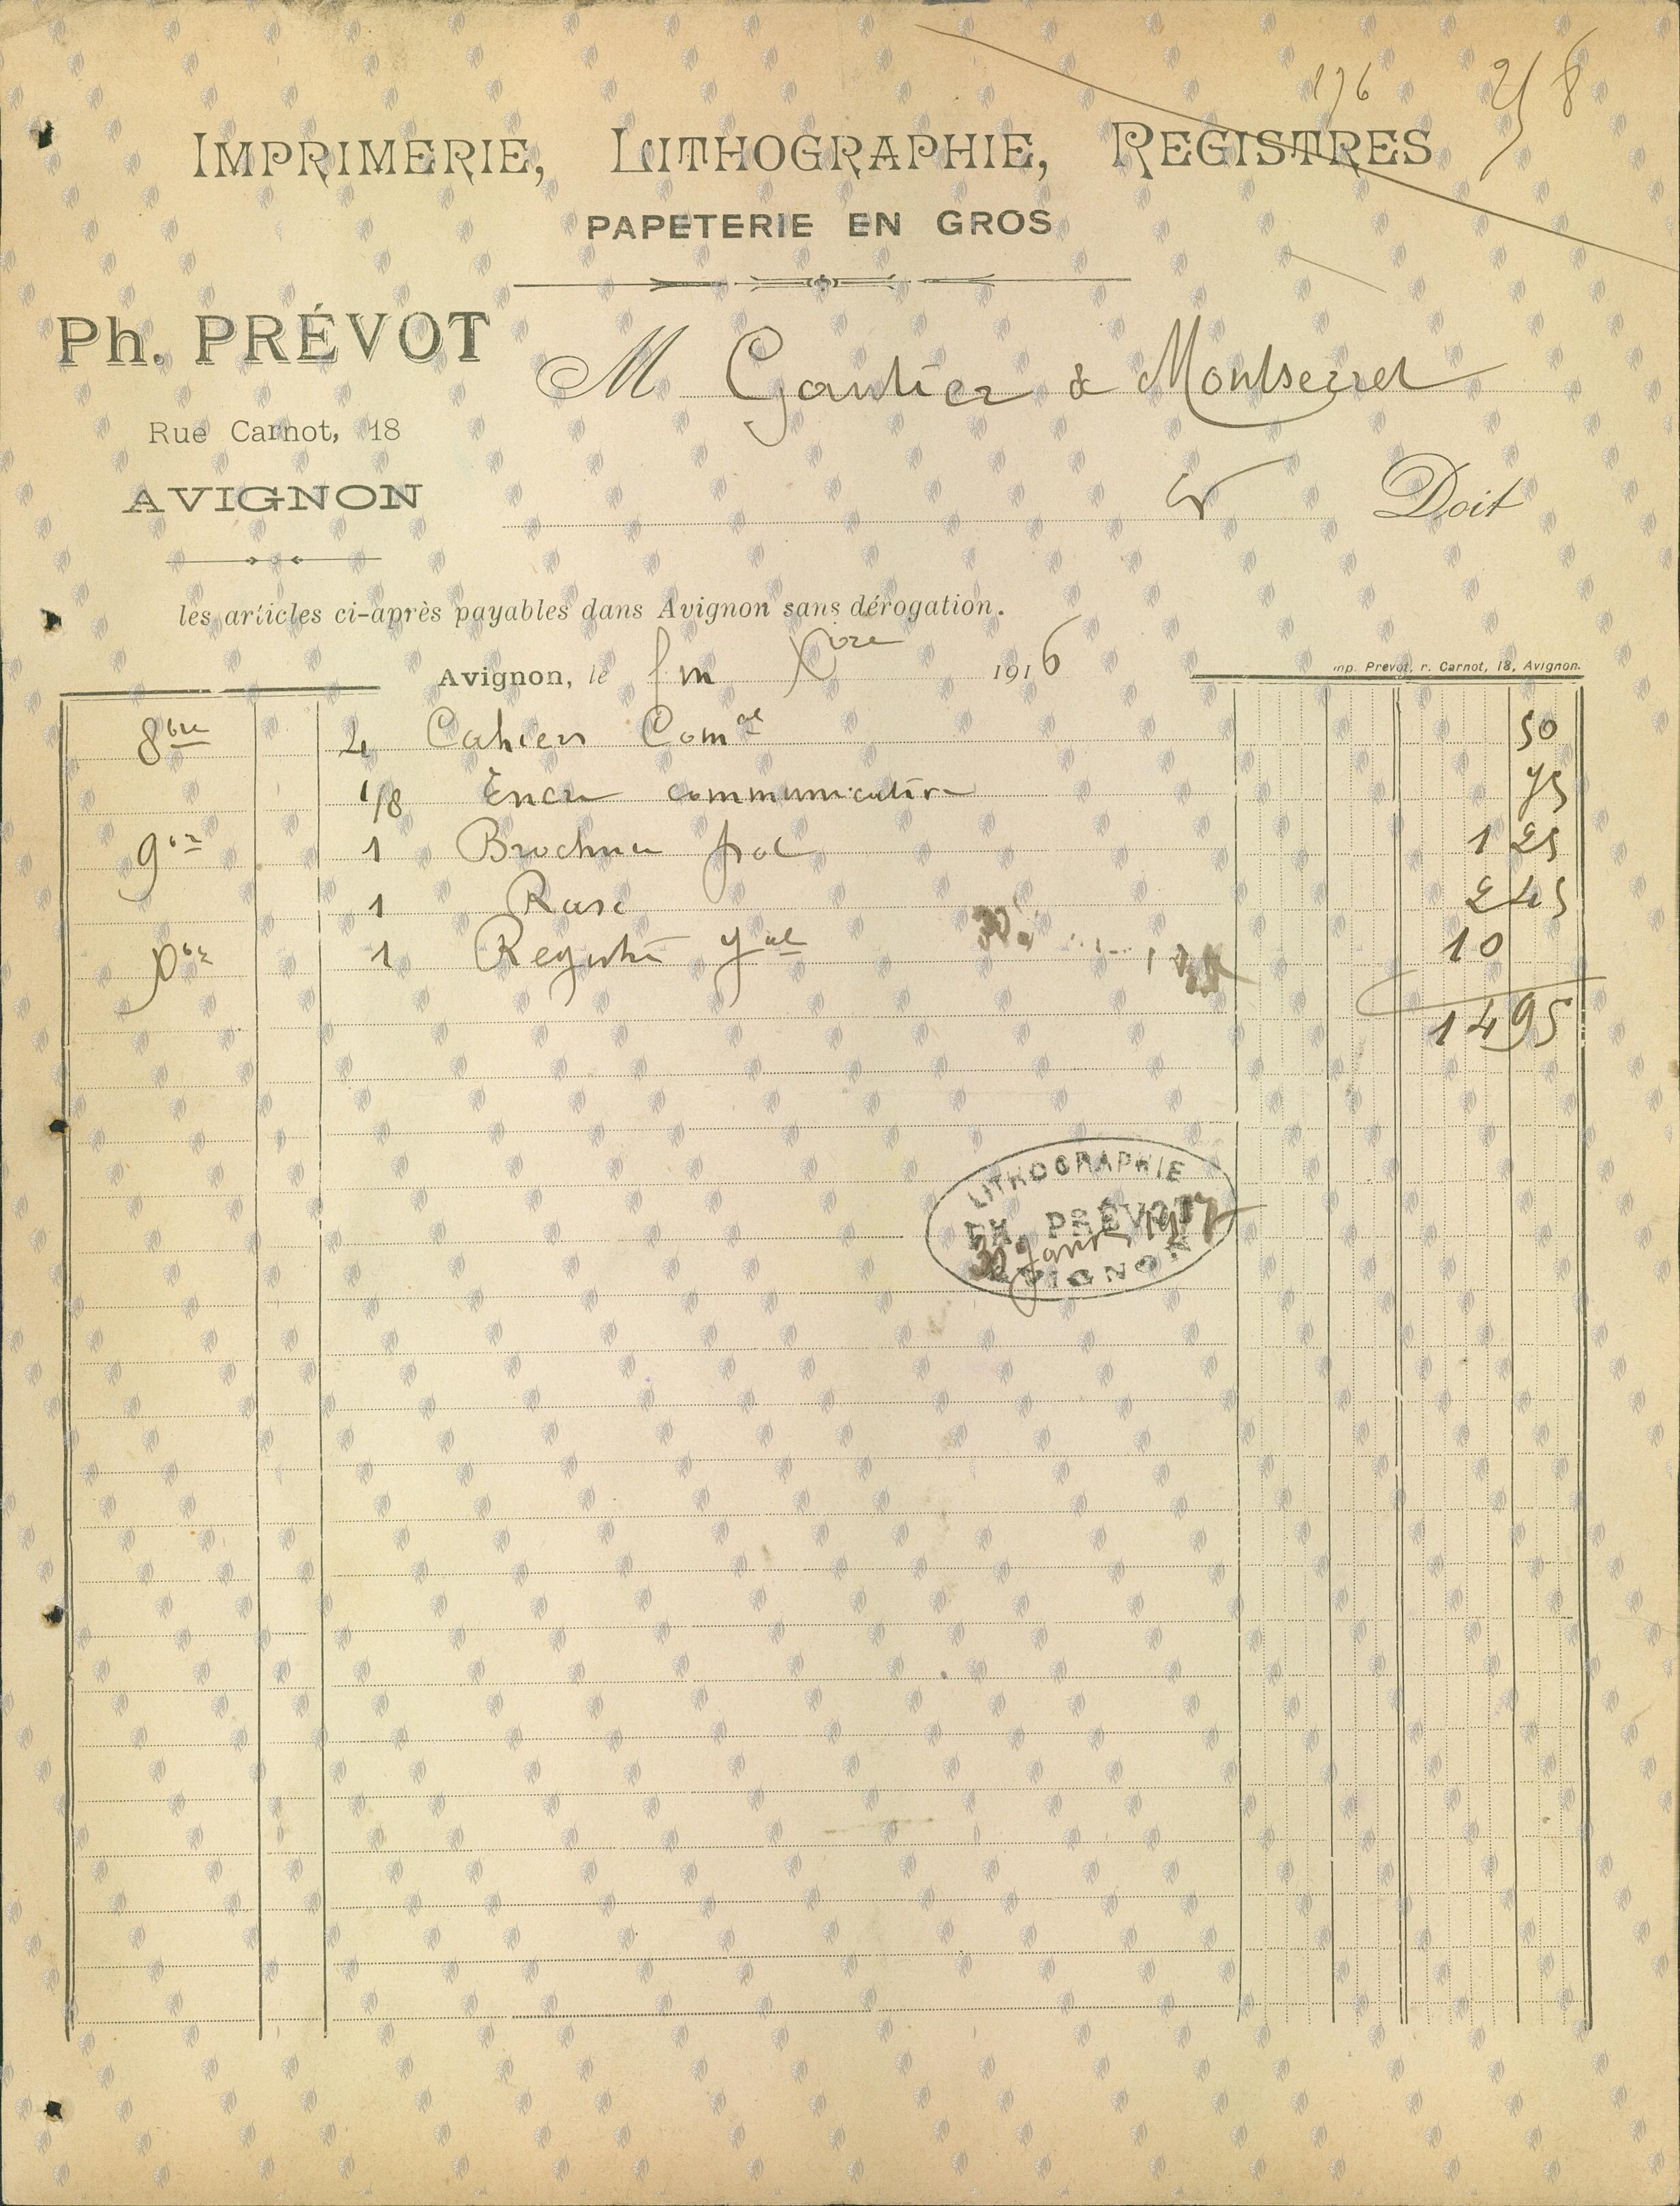 176 25 8
IMPRIMERIE, LITHOGRAPHIE, REGISTRES
PAPETERIE EN GROS
Ph. PRÉVOT
M Gautier & Montseret
Rue Carnot, 18
Doit
AVIGNON
les articles ci-après payables dans Avignon sans dérogation.
Avignon, le fin Xbre 1916
Imp. Prevot, r. Carnot, 18, Avignon.
8bre 4 Cahiers Comal 50
1/8 Encre communicative 75
9bre 1 Brochure 1 25
1 2 45
Xbre 1 Registre 10
14 95
LITHOGRAPHIE
PH. PRÉVOT
30 Janv 1917
AVIGNON